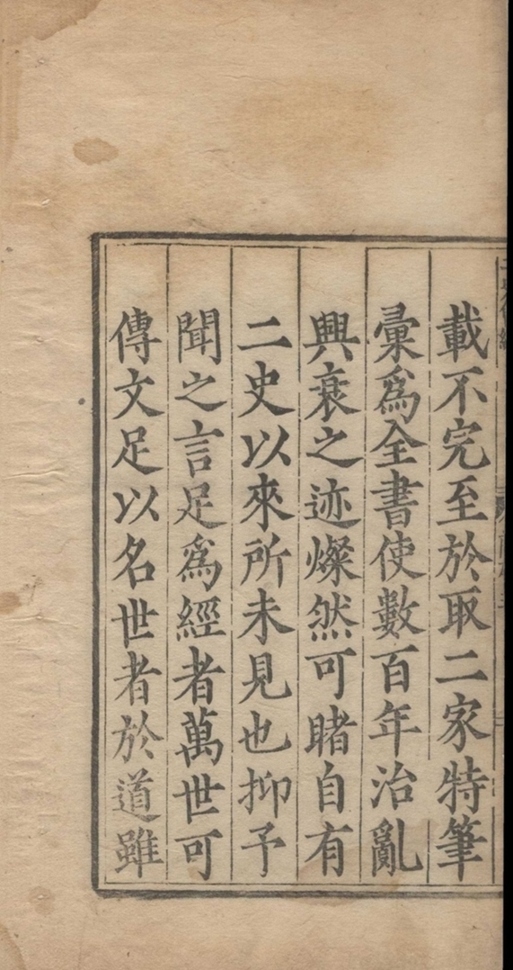 載不完至於取二家特筆
彙爲全書使數百年治亂
興衰之迹燦然可睹自有
二史以來所未見也抑予
聞之言足爲經者萬世可
傳文足以名世者於道雖